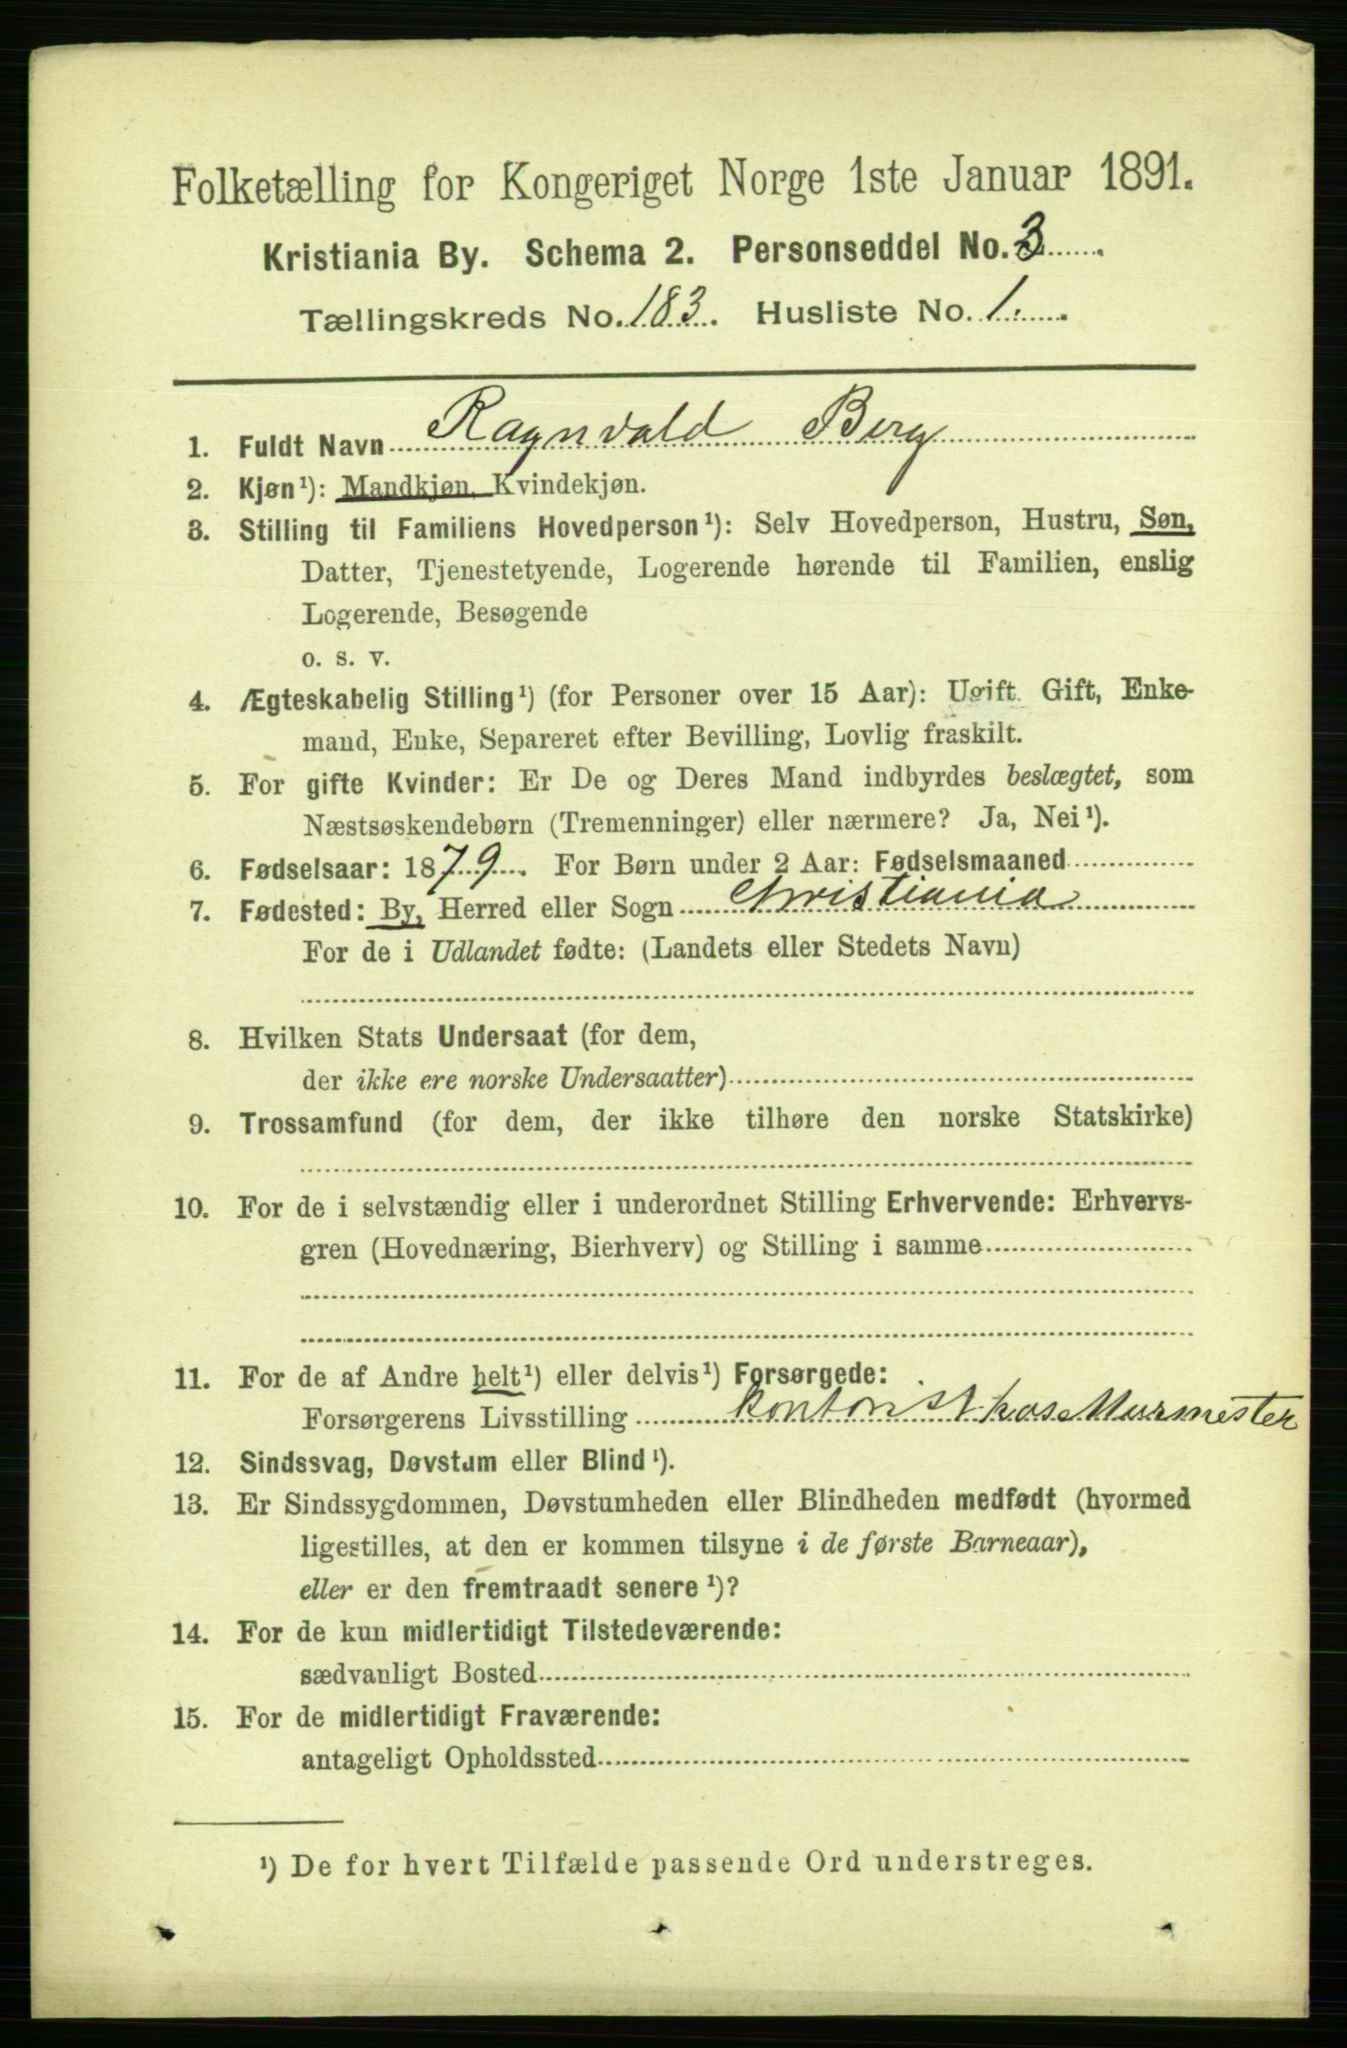 Folketælling for Kongeriget Norge 1ste Januar 1891.
Kristiania By. Schema 2. Personseddel No. 3
Tællingskreds No. 183. Husliste No. 1.
1. Fuldt Navn Ragnvald Berg
2. Kjøn¹): Mandkjøn, Kvindekjøn.
3. Stilling til Familiens Hovedperson¹): Selv Hovedperson, Hustru, Søn,
Datter, Tjenestetyende, Logerende hørende til Familien, enslig
Logerende, Besøgende
o. s. v.
4. Ægteskabelig Stilling¹) (for Personer over 15 Aar): Ugift, Gift, Enke-
mand, Enke, Separeret efter Bevilling, Lovlig fraskilt.
5. For gifte Kvinder: Er De og Deres Mand indbyrdes beslægtet, som
Næstsøskendebørn (Tremenninger) eller nærmere? Ja, Nei¹).
6. Fødselsaar: 1879. For Børn under 2 Aar: Fødselsmaaned
7. Fødested: By, Herred eller Sogn Christiania
For de i Udlandet fødte: (Landets eller Stedets Navn)
8. Hvilken Stats Undersaat (for dem,
der ikke ere norske Undersaatter)
9. Trossamfund (for dem, der ikke tilhøre den norske Statskirke)
10. For de i selvstændig eller i underordnet Stilling Erhvervende: Erhvervs-
gren (Hovednæring, Bierhverv) og Stilling i samme
11. For de af Andre helt¹) eller delvis¹) Forsørgede:
Forsørgerens Livsstilling kontorist hos Murmester
12. Sindssvag, Døvstum eller Blind¹).
13. Er Sindssygdommen, Døvstumheden eller Blindheden medfødt (hvormed
ligestilles, at den er kommen tilsyne i de første Barneaar),
eller er den fremtraadt senere¹)?
14. For de kun midlertidigt Tilstedeværende:
sædvanligt Bosted
15. For de midlertidigt Fraværende:
antageligt Opholdssted
¹) De for hvert Tilfælde passende Ord understreges.